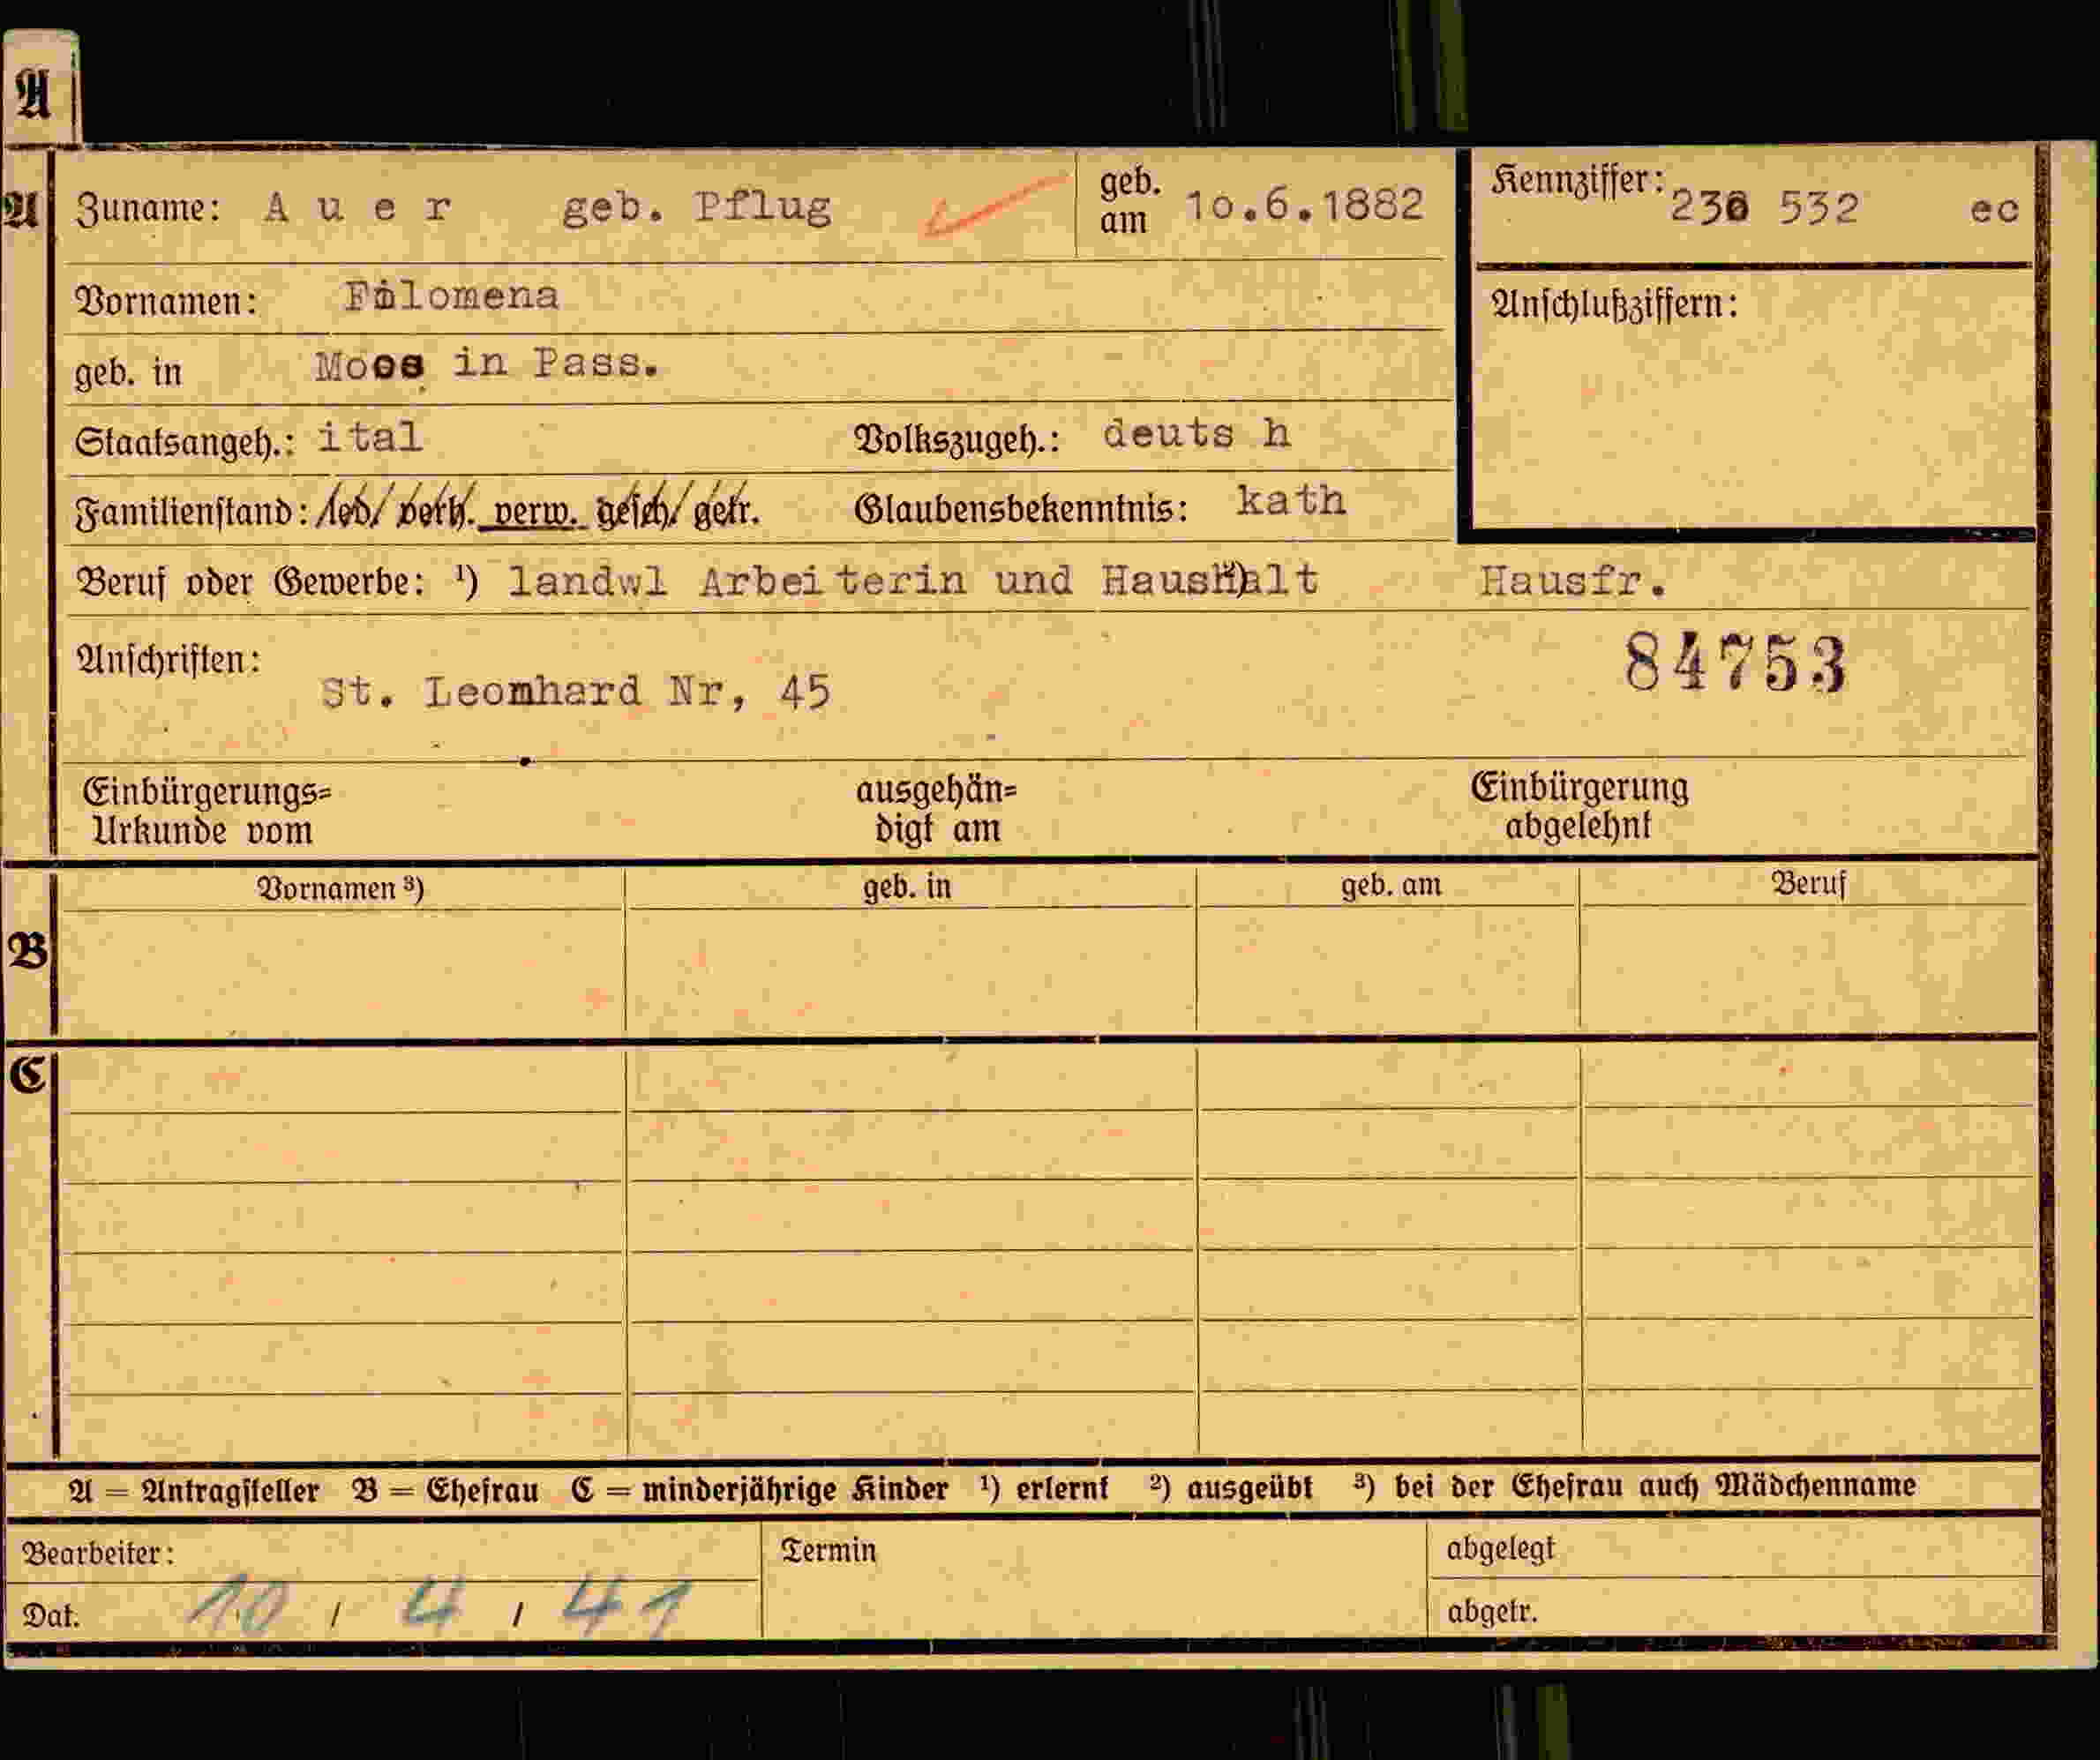 A
A
Zuname: A u e r geb. Pflug
geb. am 10.6.1882
Kennziffer: 230 532 ec
Vornamen: Filomena
Anschlußziffern:
geb. in Moos in Pass.
Staatsangeh.: ital Volkszugeh.: deuts h
Familienstand: led/ verh. verw. gesch/ getr. Glaubensbekenntnis: kath
Beruf oder Gewerbe: ¹) landwl Arbeiterin und Haushalt Hausfr.
Anschriften:
84753
St. Leomhard Nr, 45
Einbürgerungs= ausgehän= Einbürgerung
Urkunde vom digt am abgelehnt
B
Vornamen ³) geb. in geb. am Beruf
C
A = Antragsteller B = Ehefrau C = minderjährige Kinder ¹) erlernt ²) ausgeübt ³) bei der Ehefrau auch Mädchenname
Bearbeiter: Termin abgelegt
Dat. 10 / 4 / 41 abgetr.